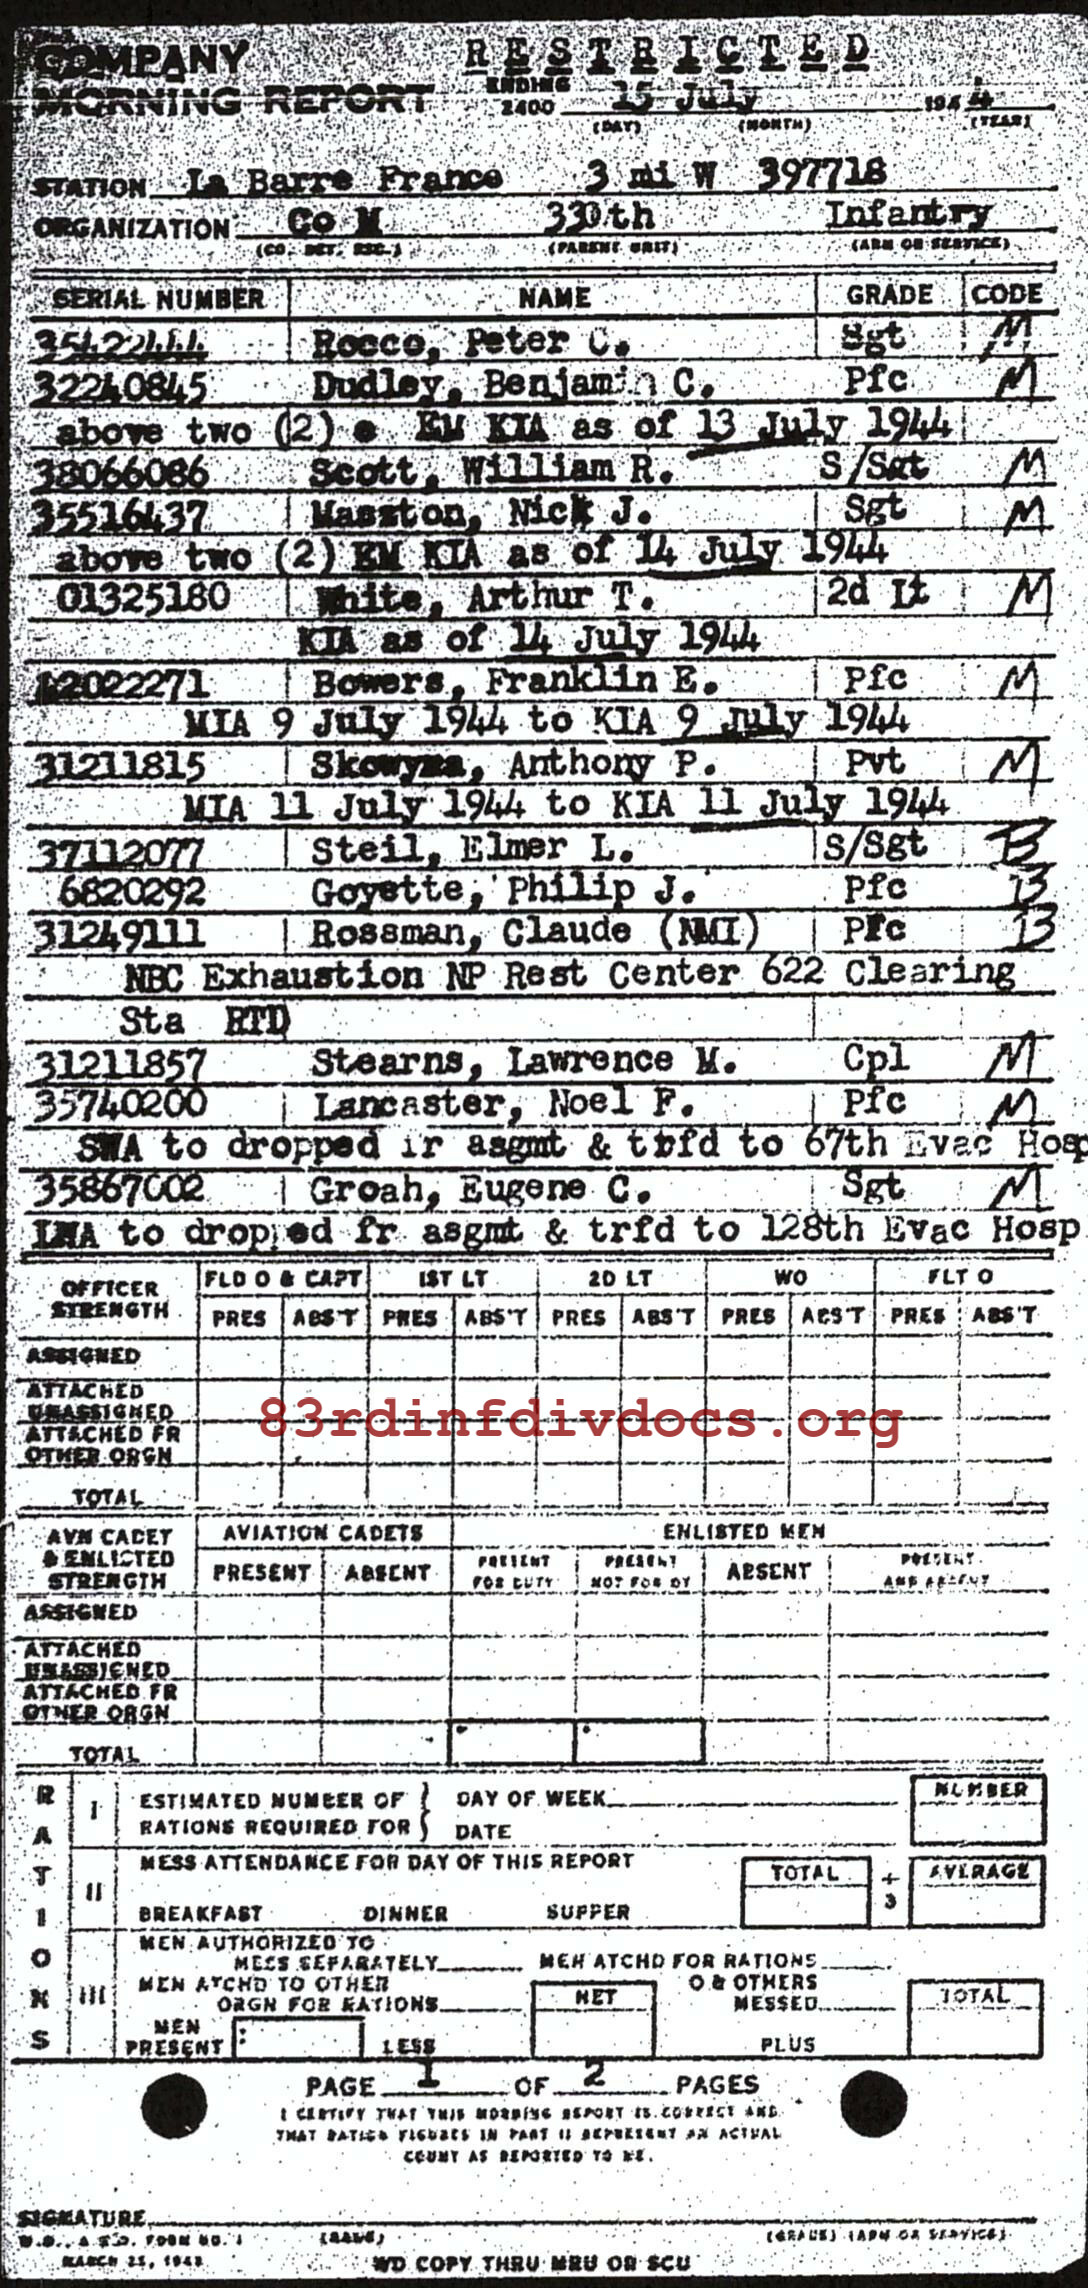 COMPANY RESTRICTED
MORNING REPORT ENDING 2400 15 July 1944
(DAY) (MONTH) (YEAR)
STATION La Barre France 3 mi W 397718
ORGANIZATION Co M 330th Infantry
(CO. DET. ESC.) (PARENT UNIT) (ARM OR SERVICE)
SERIAL NUMBER NAME GRADE CODE
35422444 Rocco, Peter C. Sgt M
32240845 Dudley, Benjamin C. Pfc M
above two (2) e EM KIA as of 13 July 1944
38066086 Scott, William R. S/Sgt M
35516437 Maszton, Nick J. Sgt M
above two (2) EM KIA as of 14 July 1944
01325180 White, Arthur T. 2d Lt M
KIA as of 14 July 1944
Bowers, Franklin E. Pfc M
MIA 9 July 1944 to KIA 9 July 1944
31211815 Anthony P. Pvt M
MIA 11 July 1944 to KIA 11 July 1944
37112077 Steil, Elmer L. S/Sgt B
6820292 Goyette, Philip J. Pfc B
31249111 Rossman, Claude (NMI) Pfc B
NBC Exhaustion NP Rest Center 622 Clearing
Sta RTD
31211857 Stearns, Lawrence M. Cpl M
35740200 Lancaster, Noel F. Pfc M
SWA to dropped fr asgmt & trfd to 67th Evac Hosp
35867002 Groah, Eugene C. Sgt M
LWA to dropped fr asgmt & trfd to 128th Evac Hosp
OFFICER STRENGTH FLD O & CAPT 1ST LT 2D LT WO FLT O
PRES ABS'T PRES ABS'T PRES ABS'T PRES ABS'T PRES ABS'T
ASSIGNED
ATTACHED UNASSIGNED
83rdinfdivdocs.org
ATTACHED FR OTHER ORGN
TOTAL
AVN CADET & ENLISTED STRENGTH AVIATION CADETS ENLISTED MEN
PRESENT ABSENT PRESENT FOR DUTY PRESENT NOT FOR DY ABSENT PRESENT AND ABSENT
ASSIGNED
ATTACHED UNASSIGNED
ATTACHED FR OTHER ORGN
TOTAL
RATIONS
I ESTIMATED NUMBER OF RATIONS REQUIRED FOR } DAY OF WEEK NUMBER
DATE
II MESS ATTENDANCE FOR DAY OF THIS REPORT TOTAL ÷ 3 AVERAGE
BREAKFAST DINNER SUPPER
III MEN AUTHORIZED TO MESS SEPARATELY MEN ATCHD FOR RATIONS
MEN ATCHD TO OTHER ORGN FOR RATIONS NET O & OTHERS MESSED TOTAL
MEN PRESENT LESS PLUS
PAGE 1 OF 2 PAGES
I CERTIFY THAT THIS MORNING REPORT IS CORRECT AND
THAT RATION FIGURES IN PART II REPRESENT AN ACTUAL
COUNT AS REPORTED TO ME.
SIGNATURE
W.D., A.G.O. FORM NO. 1 (NAME) (GRADE) (ARM OR SERVICE)
MARCH 25, 1943 WD COPY THRU MRU OR SCU